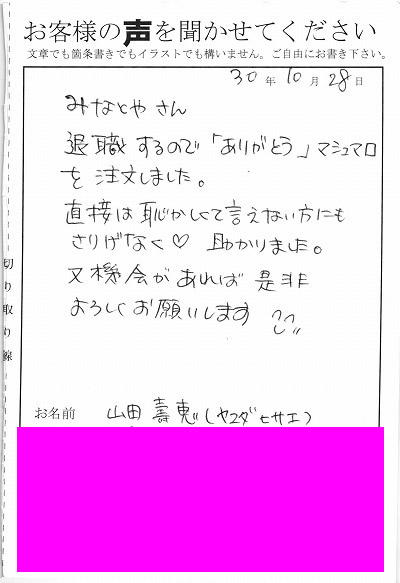 お客様の声を聞かせてください
文章でも箇条書きでもイラストでも構いません。ご自由にお書き下さい。
30年10月28日
みなとやさん
退職するので「ありがとう」マシュマロ
を注文しました。
直接は恥かしくて言えない方にも
さりげなく♡ 助かりました。
又機会があれば是非
よろしくお願いします
切り取り線
お名前 山田壽恵(ヤマダヒサエ)